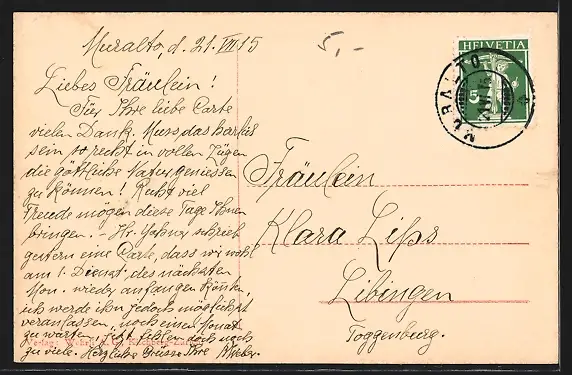 Muralto, d. 21. VII 15
5,-
HELVETIA
5
MURALTO
Liebes Fräulein!
Für Ihre liebe Carte
vielen Dank. Muss das herrlich
sein so recht in vollen Zügen
die göttliche Natur geniessen
zu können! Recht viel
Freude mögen diese Tage Ihnen
bringen. - Hr. schrieb
gestern eine Carte, dass wir wohl
am 1. Dienst. des nächsten
Mon. wieder anfangen könnten
ich werde ihn jedoch möglichst
veranlassen, noch einen Monat
zu warten, jetzt fehlen doch noch
zu viele. Herzliche Grüsse Ihre
Verlag: Wehrli A.G., Kilchberg-Zürich
Fräulein
Klara Lips
Libingen
Toggenburg.